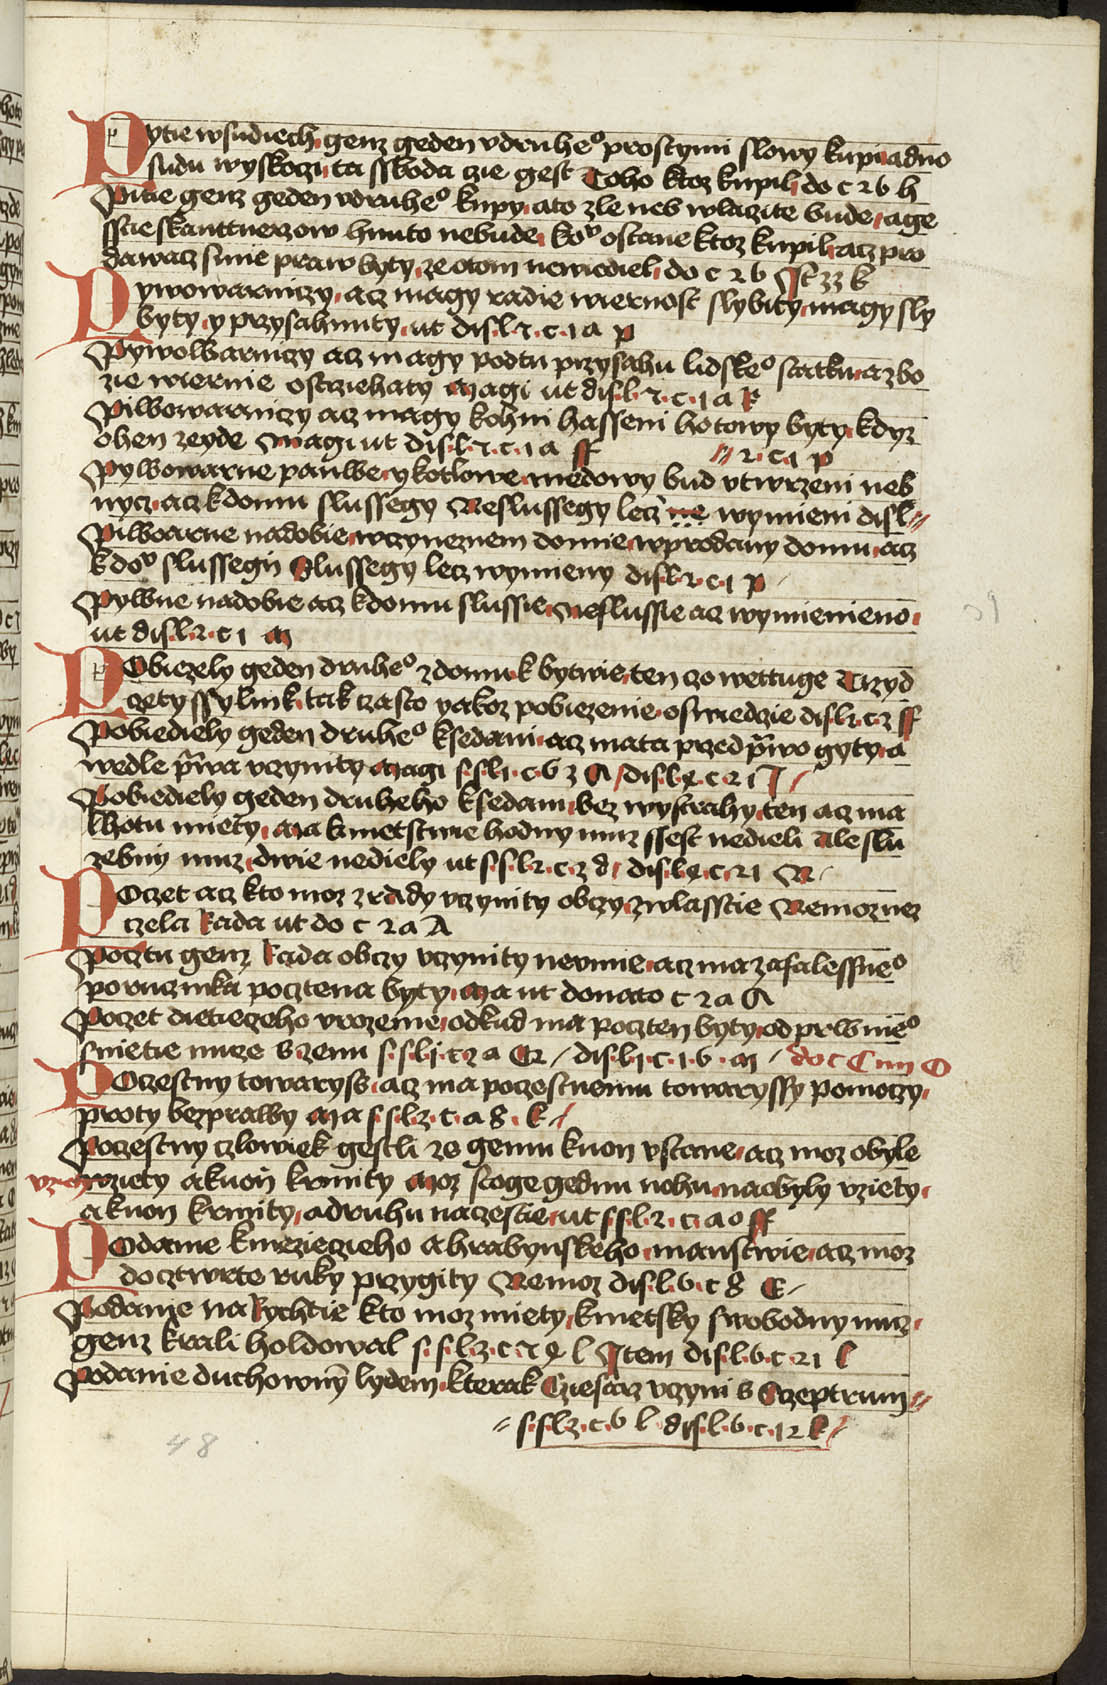 Pytie wsudiech genz geden vdruheº prostymi slowy kupi adno
sudu wyskoczi ta sskoda czie gest Toho ktoz kupil do c 26 h
Pitie genz geden vdruheº kupy ato zle neb wlaczite bude age
sstie skanttnerzow hnuto nebude koº ostane ktoz kupil acz pro
dawacz smie praw byty ze otom newiediel do c 26 It 33 k
Pywowarniczy acz magy radie wiernost slybity magy sly
byty y przysahnuty ut dis l 2 c 1 a p
Pywolbarniczy acz magy podtu przysahu lidskeº statku a zbo
zie wiernie ostrziehaty Magi ut dis l 2 c 1 a R
Piwowarniczy acz magy kohni hasseni hotowy byty kdyz
ohen zeyde Magi ut dis l 2 c 1 a ff
// 2 c 1 p
Pywowarne panwe y kotlowe medowy bud vtwrzeni neb
nycz acz kdomu slussegy Neslussegy lecz ne wymieni dis l //
Piwoarne nadobie wczyneznem domie wprodany domu acz
kdoº slussegij Slussegy lecz wymieny dis l 2 c 1 p
Pywne nadobie acz kdomu slussie Neslussie acz wymienieno
ut dis l 2 c 1 m
Pobiezely geden druheº zdomu k bytwie ten czo wettuge Trzyd
czety ssylink tak czasto yakoz pobiezenie oswiedczie dis l 2 c 2 ff
Pobiediely geden druheº ksedani acz mata przed prwo gyty a
wedle prwa vczynity Magi s s l 1 c 6 3 A / dis l 4 c 21 J
Pobiediely geden druheho ksedani bez wystrahy ten acz ma
lhotu miety Ma kmetstwie hodny muz ssest nedieli Ale slu
zebny muz dwie nediely ut s s l 2 c 3 d dis l 4 c 21 N
Poczet acz kto moz zrady vczynity obczy zwlasstie Nemoz nez
czela Rada ut do c 2 a A
Pocztu genz Rada obczy vczynity neumie acz ma zafalessneº
porucznika pocztena byty Ma ut donato c 2 a A
Poczet dietieczeho vrozenie odkud ma poczten byty od prwnieº
smietie muze s zenu s s l 1 c 2 a Q / dis l 1 c 1 6 m / do c C iiii O
Poczestny towaryss acz ma poczestnemu towaryssy pomoczy
proty bezprawy Ma s s l 2 c a 8 k
Poczestny czlowiek gestli zs gemu kuon vstane acz moz obyle
vzie wziety akuon krmity Moz stoge gednu nohu naobyly vziety
akuon krmity adruhu naczestie ut s s l 2 c a o ff
Podanie kniezieczieho ahrabynskeho manstwie acz moz
do cztwrte ruky przygity Nemoz dis l 6 c 8 E
Podanie na Rychtie kto moz miety kmetsky swobodny muz
genz krali holdowal s s l 3 c 2 4 l Item dis l 6 c 21 l
Podanie duchowny lydem kterak Cziesarz vczyni s Sczeptrum //
// s s l 2 c 6 l dis l 6 c 12 k
48